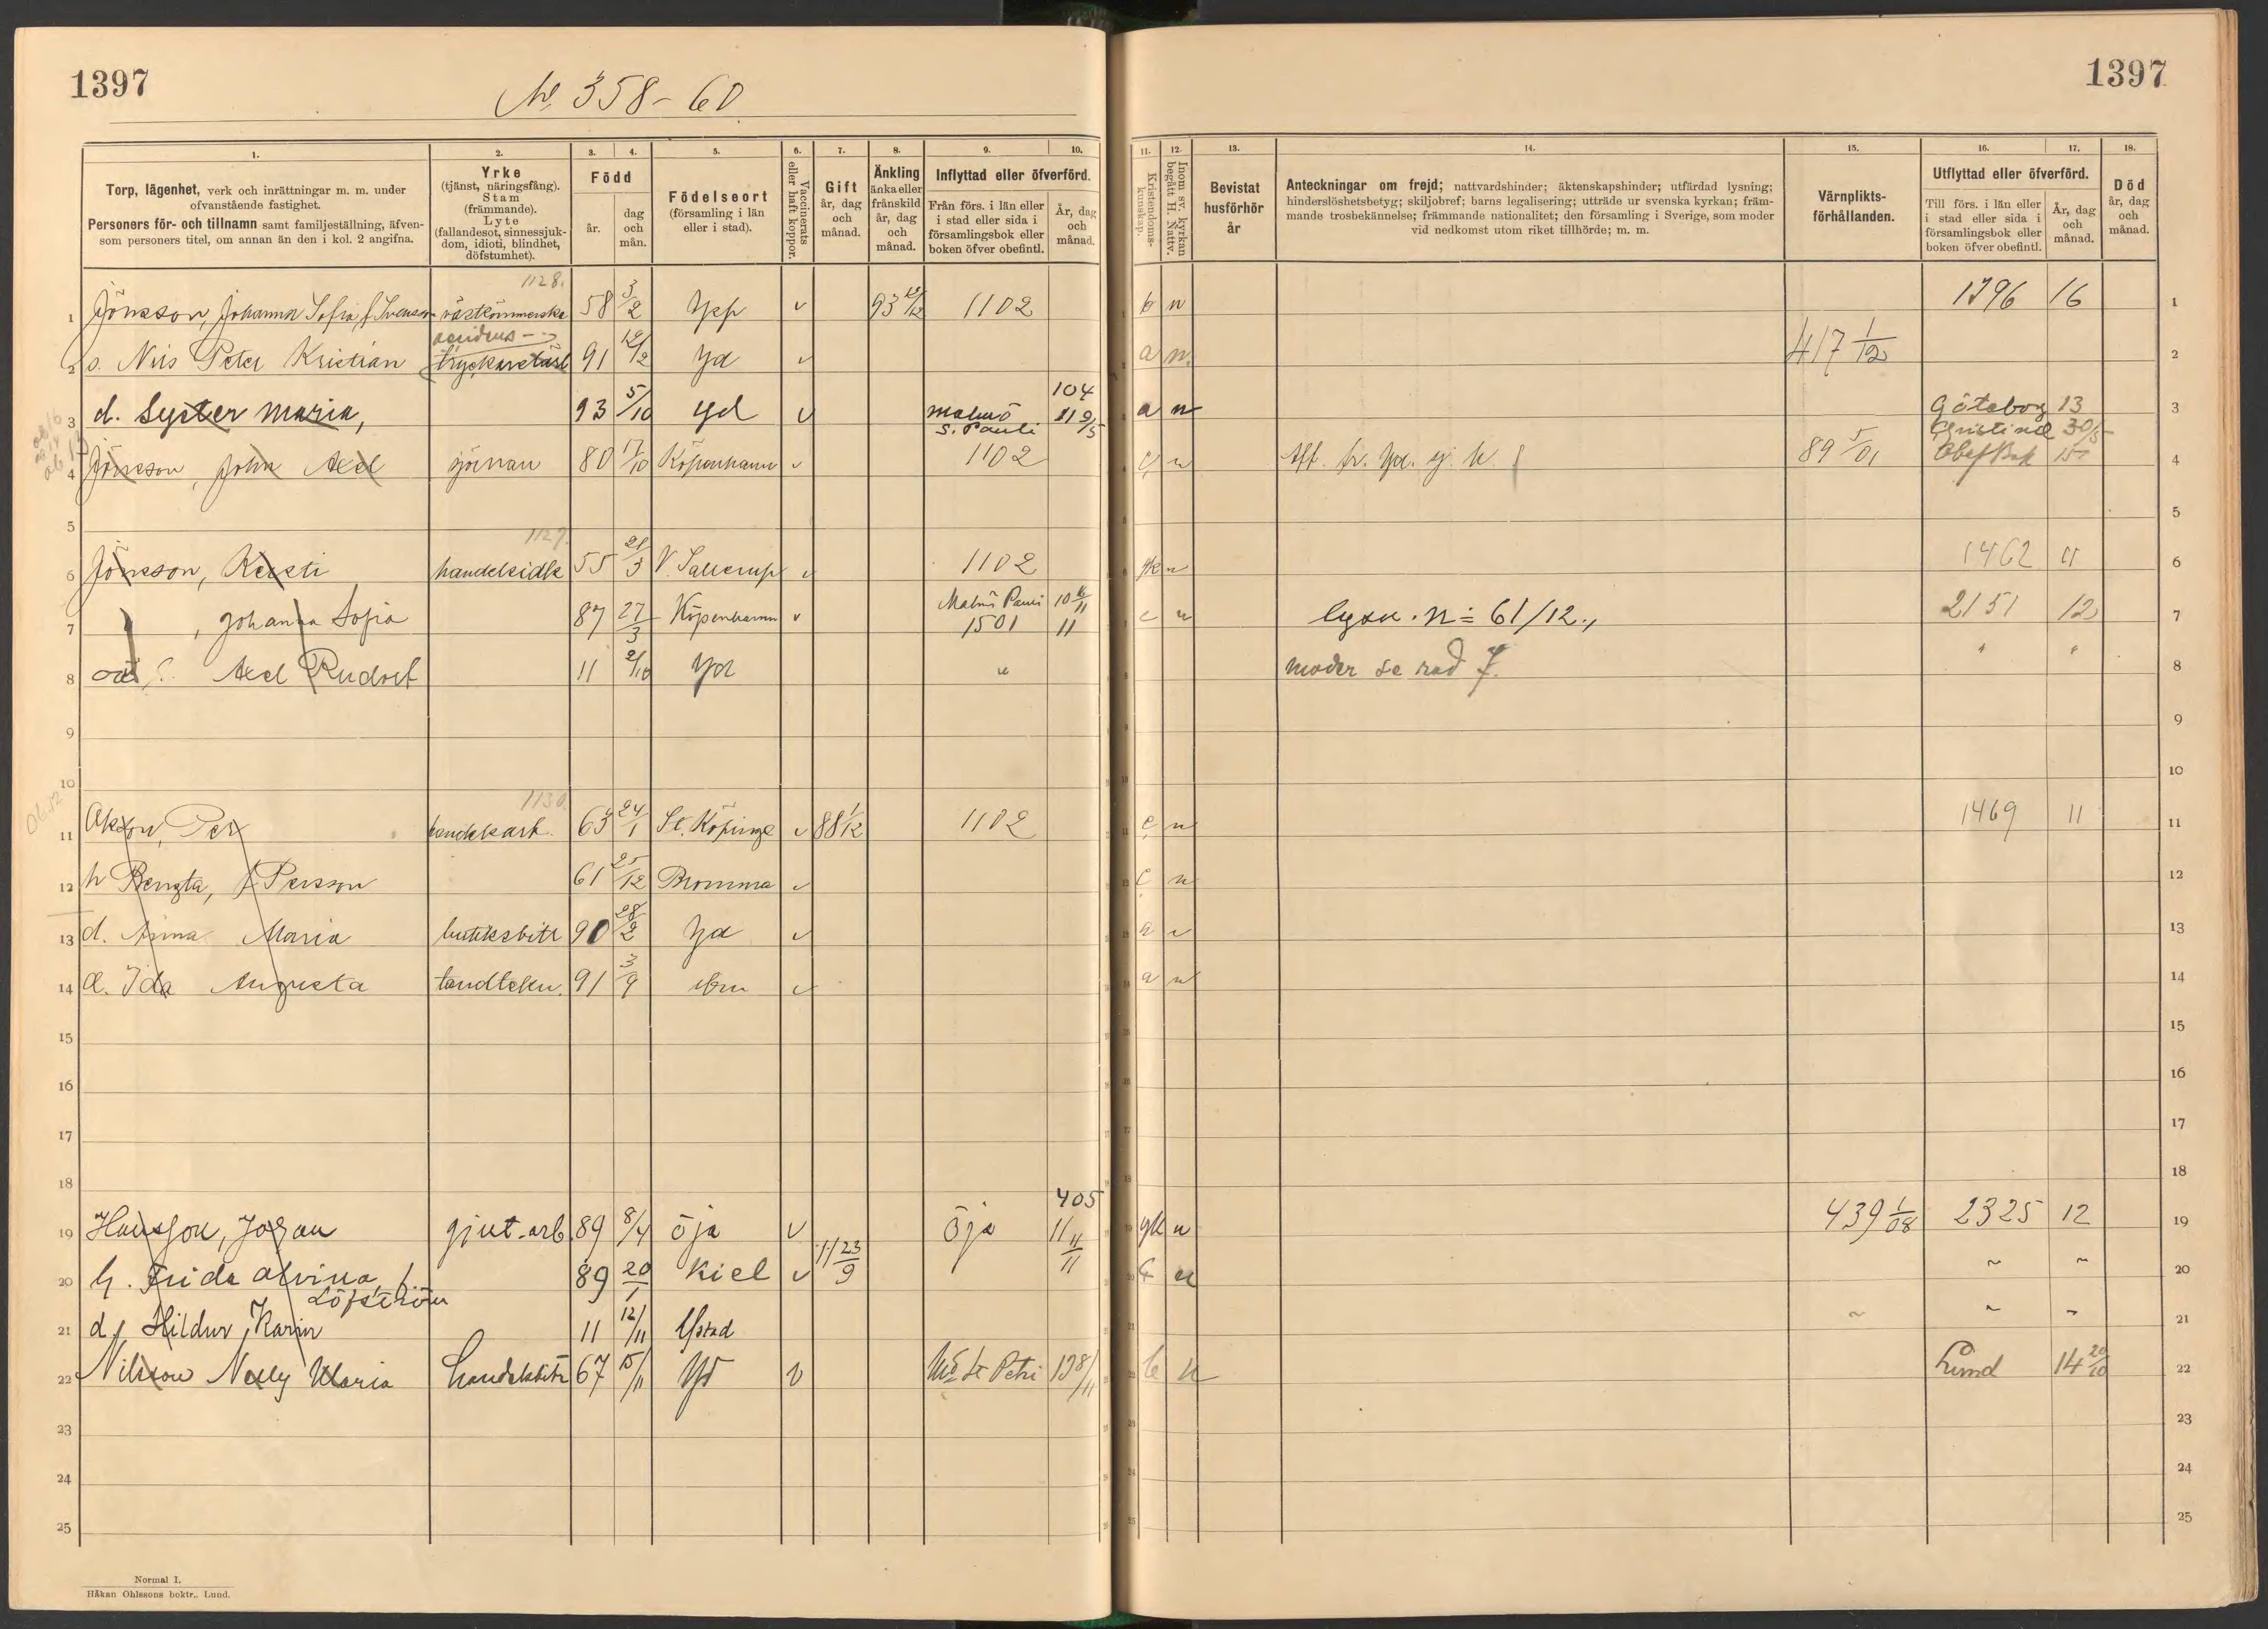 1397
1397
No 358-60
1. 2. 3. 4. 5. 6. 7. 8. 9. 10. 11. 12. 13. 14. 15. 16. 17. 18.
Torp, lägenhet, verk och inrättningar m. m. under
ofvanstående fastighet.
Personers för- och tillnamn samt familjeställning, äfven-
som personers titel, om annan än den i kol. 2 angifna.
Yrke
(tjänst, näringsfång).
Stam
(främmande).
Lyte
(fallandesot, sinnessjuk-
dom, idioti, blindhet,
döfstumhet).
Född
år.
dag
och
mån.
Födelseort
(församling i län
eller i stad).
Vaccinerats
eller haft koppor.
Gift
år, dag
och
månad.
Änkling
änka eller
frånskild
år, dag
och
månad.
Inflyttad eller öfverförd.
Från förs. i län eller
i stad eller sida i
församlingsbok eller
boken öfver obefintl.
År, dag
och
månad.
Kristendoms-
kunskap.
Inom sv. kyrkan
begått H. Nattv.
Bevistat
husförhör
år
Anteckningar om frejd; nattvardshinder; äktenskapshinder; utfärdad lysning;
hinderslöshetsbetyg; skiljobref; barns legalisering; utträde ur svenska kyrkan; främ-
mande trosbekännelse; främmande nationalitet; den församling i Sverige, som moder
vid nedkomst utom riket tillhörde; m. m.
Värnplikts-
förhållanden.
Utflyttad eller öfverförd.
Till förs. i län eller
i stad eller sida i
församlingsbok eller
boken öfver obefintl.
År, dag
och
månad.
Död
år, dag
och
månad.
1128.
1 Jönsson, Johanna Sofia f Svensson 58 3/2 v 93 1102 b n 1796 16 1
2 s. Nils Peter Kristian 91 /12 Yd v a n. 417 1/12 2
104
3 d. Syster Maria, 93 5/10 Yd v Malmö S. Pauli 11 9/5 a n Göteborg Christinæ 13 30/5 3
4 Jönsson, John Axel sjöman 80 17/10 Köpenhamn v 1102 n 89 5/01 Obef Bok 15 4
5 5
1129.
6 Jönsson, Kersti handelsidk 55 21/3 V. Sallerup v 1102 n 1462 11 6
7 , Johanna Sofia 87 27/3 Köpenhamn v Malmö Pauli 10 1501 11 c n lysn. n= 61/12., 2151 12 7
8 Axel Rudolf 11 2/10 Yd " moder se rad 7. " " 8
9 9
10 10
1130.
11 Åkesson, Per 63 24/1 St. Köpinge v 88 1/12 1102 c n 1469 11 11
12 h Bengta, f Persson 61 25/12 Bromma v c n 12
13 d. Anna Maria butiksbitr 90 28/2 Yd v a n 13
14 d. Ida Augusta tandtekn. 91 3/9 ibm v a n 14
15 15
16 16
17 17
18 18
405
19 Hansson, Johan gjut.arb. 89 8/4 Öja v Öja 11 11/11 gk n 439 1/08 2325 12 19
20 h. Frida Alvina, f. Löfström 89 20/1 Kiel v 11 23/9 n ~ ~ 20
21 d. Hildur Karin 11 12/11 Ystad ~ ~ ~ 21
22 Nilsson Nelly Maria handelsbitr 67 15/11 Yd v Mö St Petri 13 8/11 n Lund 14 20/10 22
23 23
24 24
25 25
Normal 1.
Håkan Ohlssons boktr., Lund.